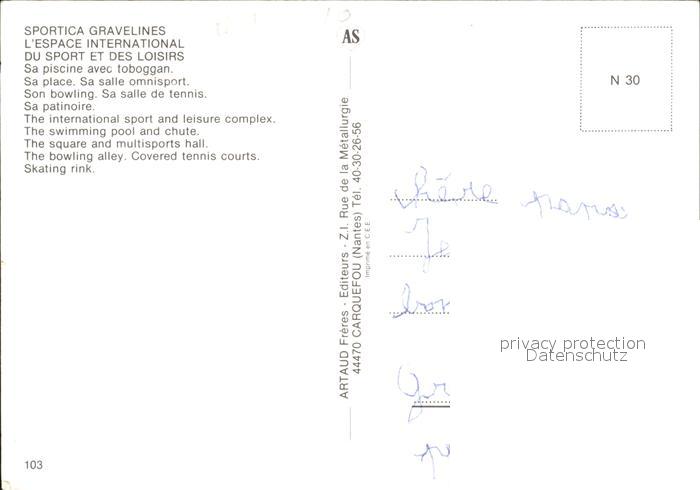 SPORTICA GRAVELINES
L'ESPACE INTERNATIONAL
DU SPORT ET DES LOISIRS
Sa piscine avec toboggan.
Sa place. Sa salle omnisport.
Son bowling. Sa salle de tennis.
Sa patinoire.
The international sport and leisure complex.
The swimming pool and chute.
The square and multisports hall.
The bowling alley. Covered tennis courts.
Skating rink.
103
AS
ARTAUD Frères - Editeurs - Z.I. Rue de la Métallurgie
44470 CARQUEFOU (Nantes) Tél. 40-30-26-56
Imprimé en C.E.E.
N 30
Je
privacy protection
Datenschutz